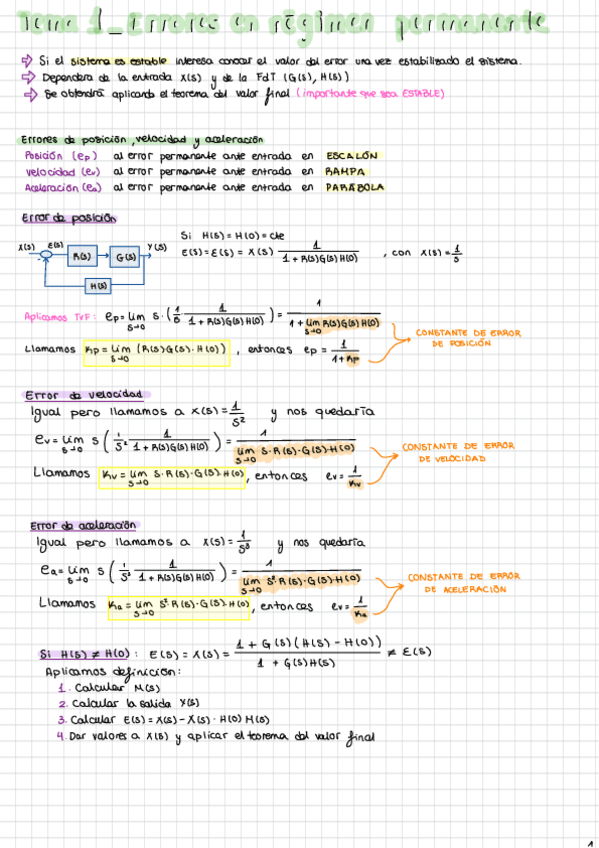 Tema 1_Errores en régimen permanente
⇒ Si el sistema es estable interesa conocer el valor del error una vez estabilizado el sistema.
⇒ Dependera de la entrada X(s) y de la FdT (G(s), H(s))
⇒ Se obtendrá aplicando el teorema del valor final (importante que sea ESTABLE)
Errores de posición, velocidad y aceleración
Posición (ep) al error permanente ante entrada en ESCALÓN
Velocidad (ev) al error permanente ante entrada en RAMPA
Aceleración (ea) al error permanente ante entrada en PARÁBOLA
Error de posición
X(s) E(s) R(s) G(s) Y(s) H(s)
Si H(s) = H(0) = cte
E(s) = ε(s) = X(s) 1/(1 + R(s)G(s)H(0)) , con X(s) = 1/s
Aplicamos TVF: ep = lim s→0 s·(1/s 1/(1 + R(s)G(s)H(0))) = 1/(1 + lim s→0 R(s)G(s)H(0))
CONSTANTE DE ERROR
DE POSICIÓN
Llamamos Kp = lim s→0 (R(s)G(s)·H(0)) , entonces ep = 1/(1+Kp)
Error de velocidad
Igual pero llamamos a X(s) = 1/s² y nos quedaría
ev = lim s→0 s (1/s² 1/(1 + R(s)G(s)H(0))) = 1/(lim s→0 s·R(s)·G(s)·H(0))
CONSTANTE DE ERROR
DE VELOCIDAD
Llamamos Kv = lim s→0 s·R(s)·G(s)·H(0) , entonces ev = 1/Kv
Error de aceleración
Igual pero llamamos a X(s) = 1/s³ y nos quedaría
ea = lim s→0 s (1/s³ 1/(1 + R(s)G(s)H(0))) = 1/(lim s→0 s²·R(s)·G(s)·H(0))
CONSTANTE DE ERROR
DE ACELERACIÓN
Llamamos Ka = lim s→0 s²·R(s)·G(s)·H(0) , entonces ev = 1/Ka
Si H(s) ≠ H(0) : E(s) = X(s) = (1 + G(s)(H(s) - H(0)))/(1 + G(s)H(s)) ≠ ε(s)
Aplicamos definición:
1. Calcular M(s)
2. Calcular la salida Y(s)
3. Calcular E(s) = X(s) - X(s) · H(0) M(s)
4. Dar valores a X(s) y aplicar el teorema del valor final
1